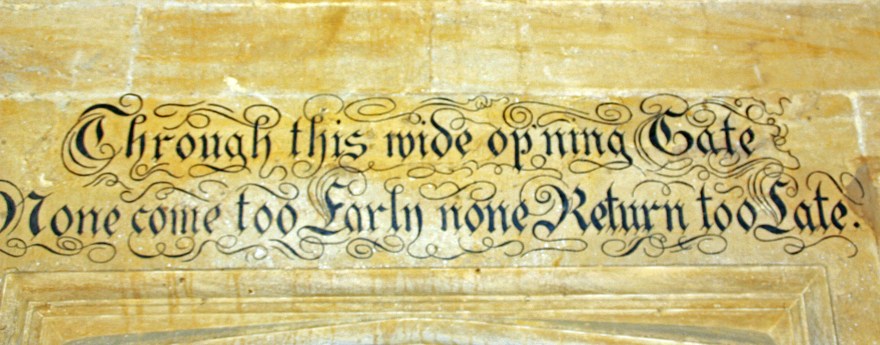 Through this wide op'ning Gate
None come too Early none Return too Late.